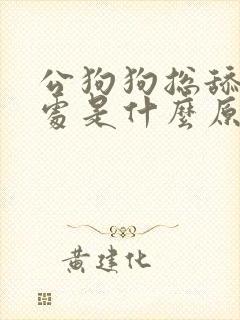 公狗狗总舔
处是什麼原
黄建化